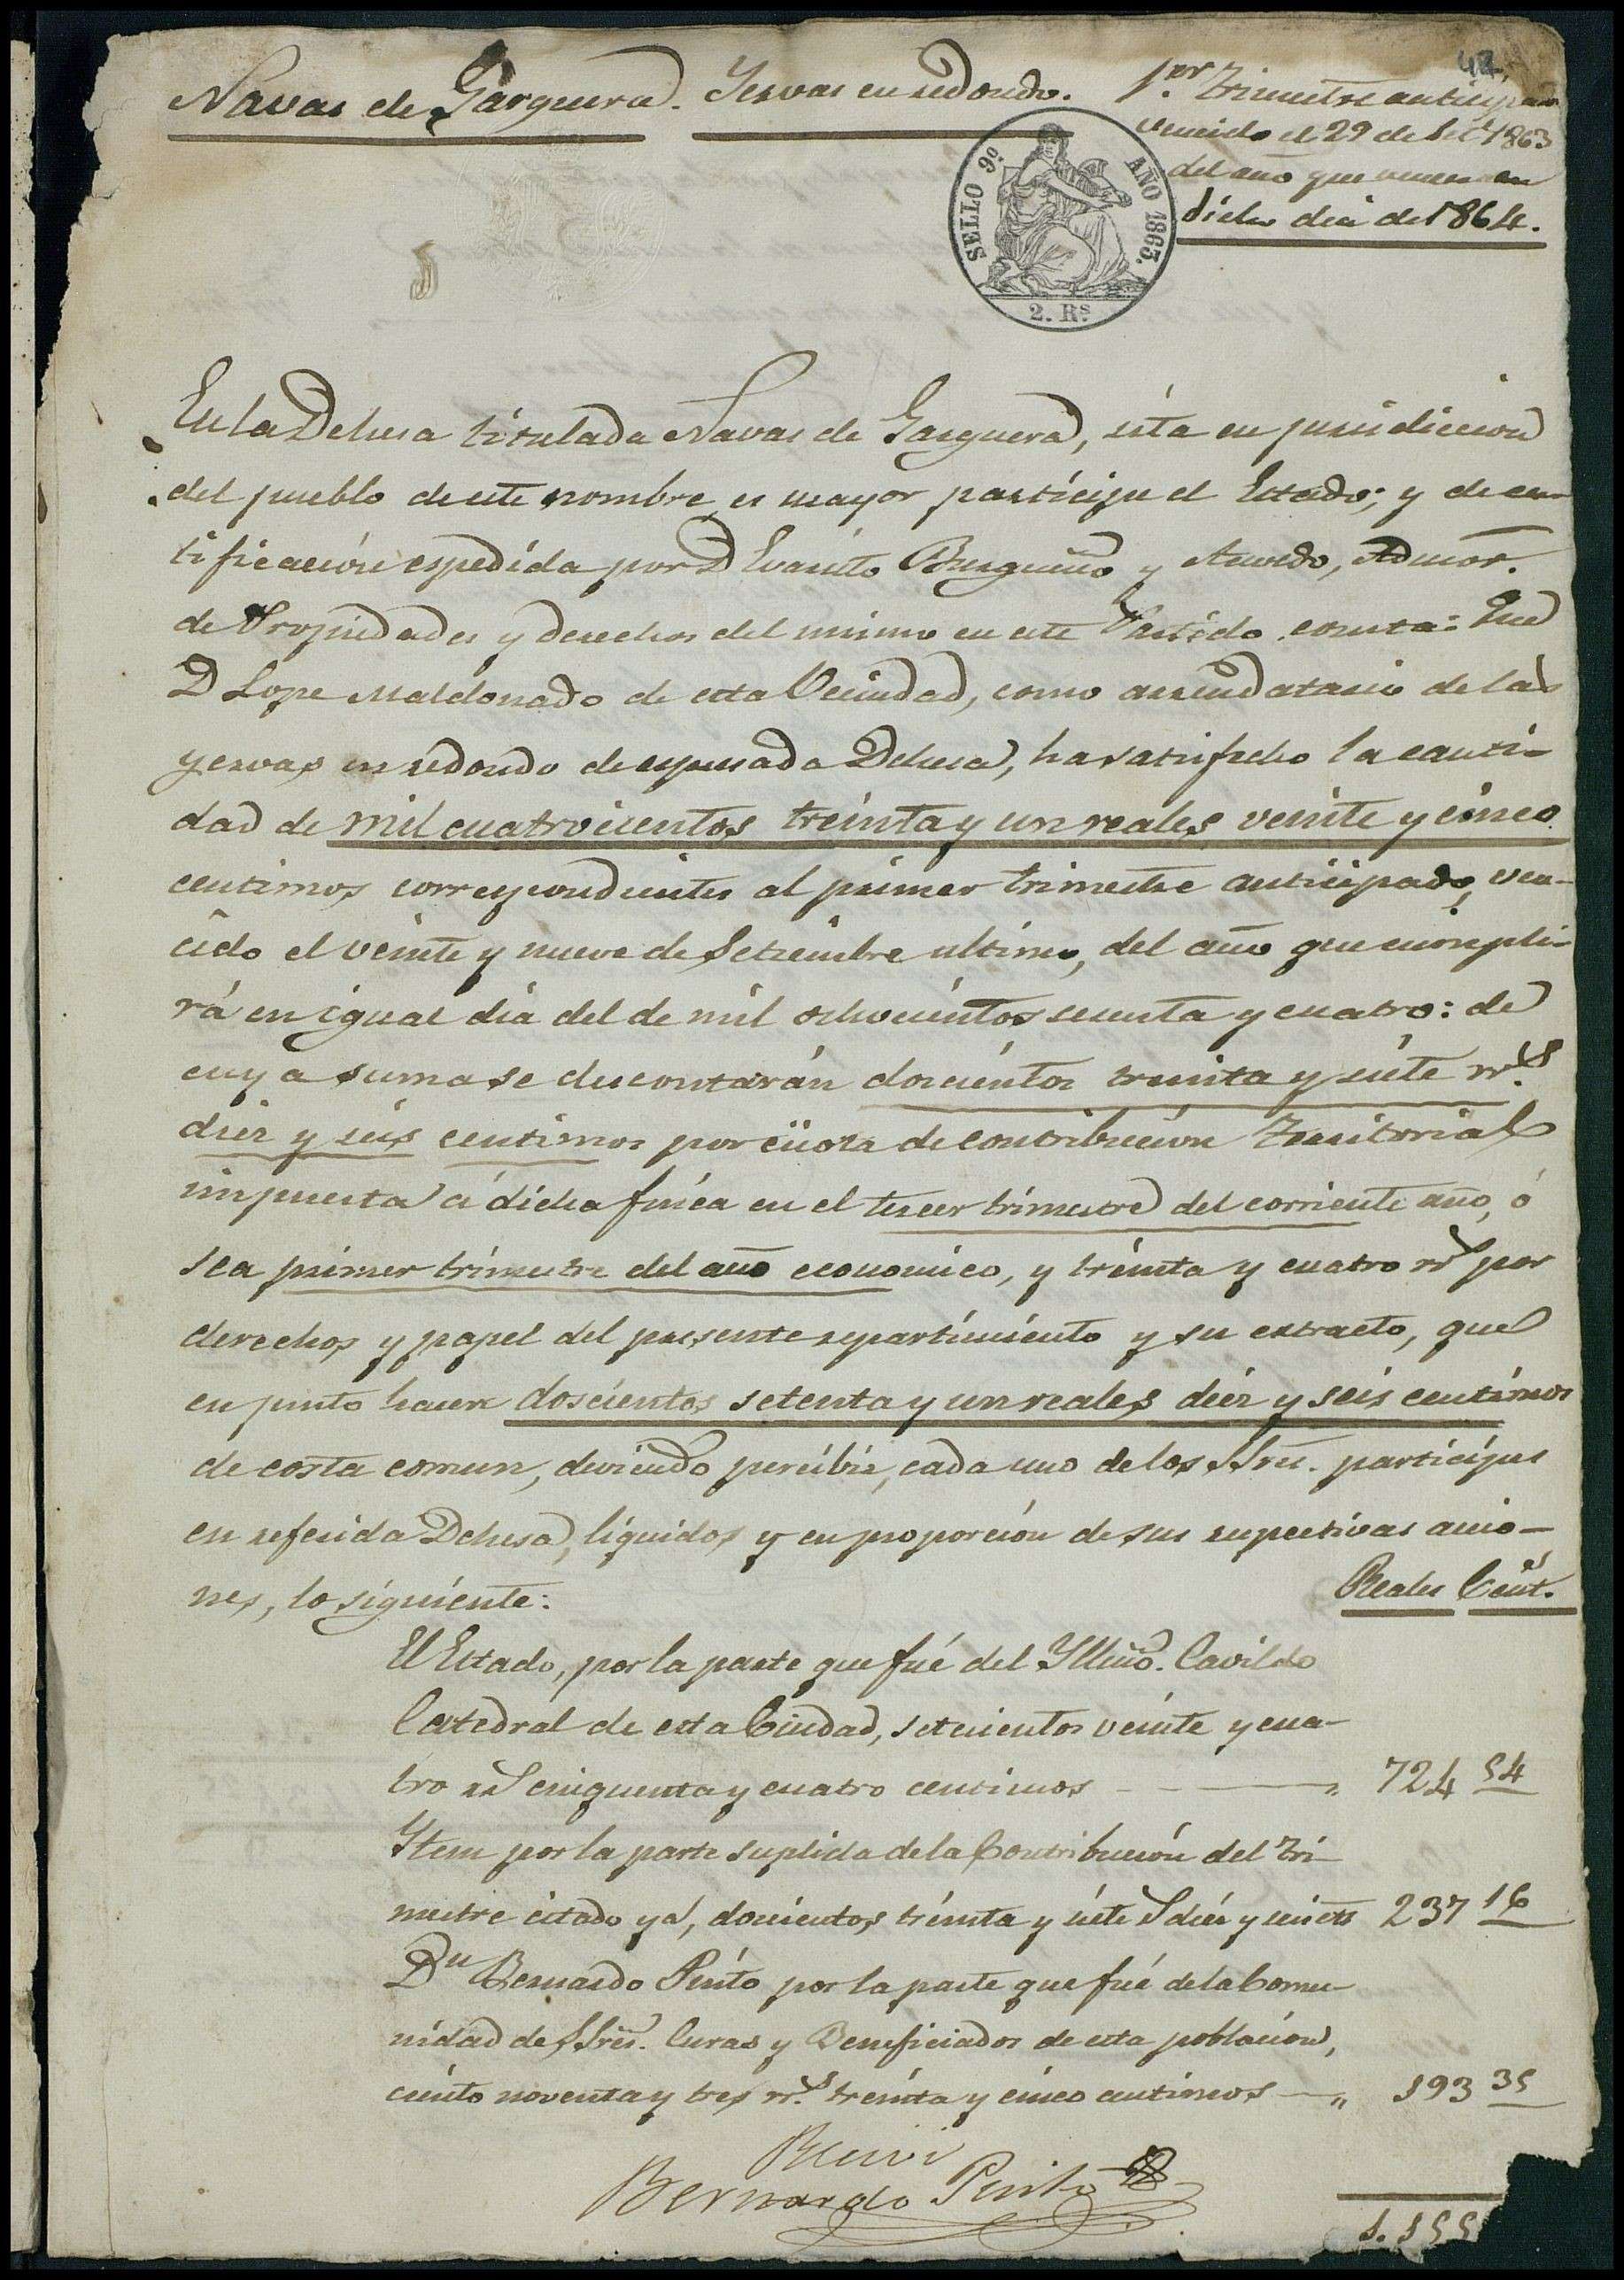 42
Navas de Garguera. Yervas en redondo. 1.er Trimestre anticipado
vencido el 29 de Set. 1863
del año que vence en
dicho dia de 1864.
SELLO 9º AÑO 1863.
2. Rs.
En la Dehesa titulada Navas de Garguera, sita en jurisdiccion
del pueblo de este nombre es mayor participe el Estado; y de cer-
tificación espedida por D Evaristo Burgueño y Acevedo, Admor.
de Propiedades y derechos del mismo en este Partido consta: Que
D Lope Maldonado de esta Vecindad, como arrendatario de las
yervas en redondo de espresada Dehesa, ha satisfecho la canti-
dad de mil cuatrocientos treinta y un reales veinte y cinco
centimos correspondientes al primer trimestre anticipado, ven-
cido el veinte y nueve de Setiembre ultimo, del año que cumpli-
rá en igual dia del de mil ochocientos sesenta y cuatro: de
cuya suma se descontarán doscientos treinta y siete rr.s
diez y seis centimos por cuota de contribucion Territorial
impuesta á dicha finca en el tercer trimestre del corriente año, ó
sea primer trimestre del año economico, y treinta y cuatro rs por
derechos y papel del presente repartimiento y su extracto, que
en junto hacen doscientos setenta y un reales diez y seis centimos
de costa comun, deviendo percibir, cada uno de los SSres. participes
en referida Dehesa, liquidos y en proporción de sus respectivas accio-
nes, lo siguiente:
Reales Cent.s
El Estado, por la parte que fué del Yllmo. Cavildo
Catedral de esta Ciudad, setecientos veinte y cua-
tro rs cinquenta y cuatro centimos — " 724 54
Ytem por la parte suplida de la Contribución del tri-
mestre citado ya, doscientos treinta y siete rs diez y seis cts 237 16
Dn Bernardo Pinto por la parte que fué de la Comu-
nidad de SSres. Curas y Beneficiados de esta poblacion,
ciento noventa y tres rr.s treinta y cinco centimos — " 193 35
Recivi
Bernardo Pinto
1.155